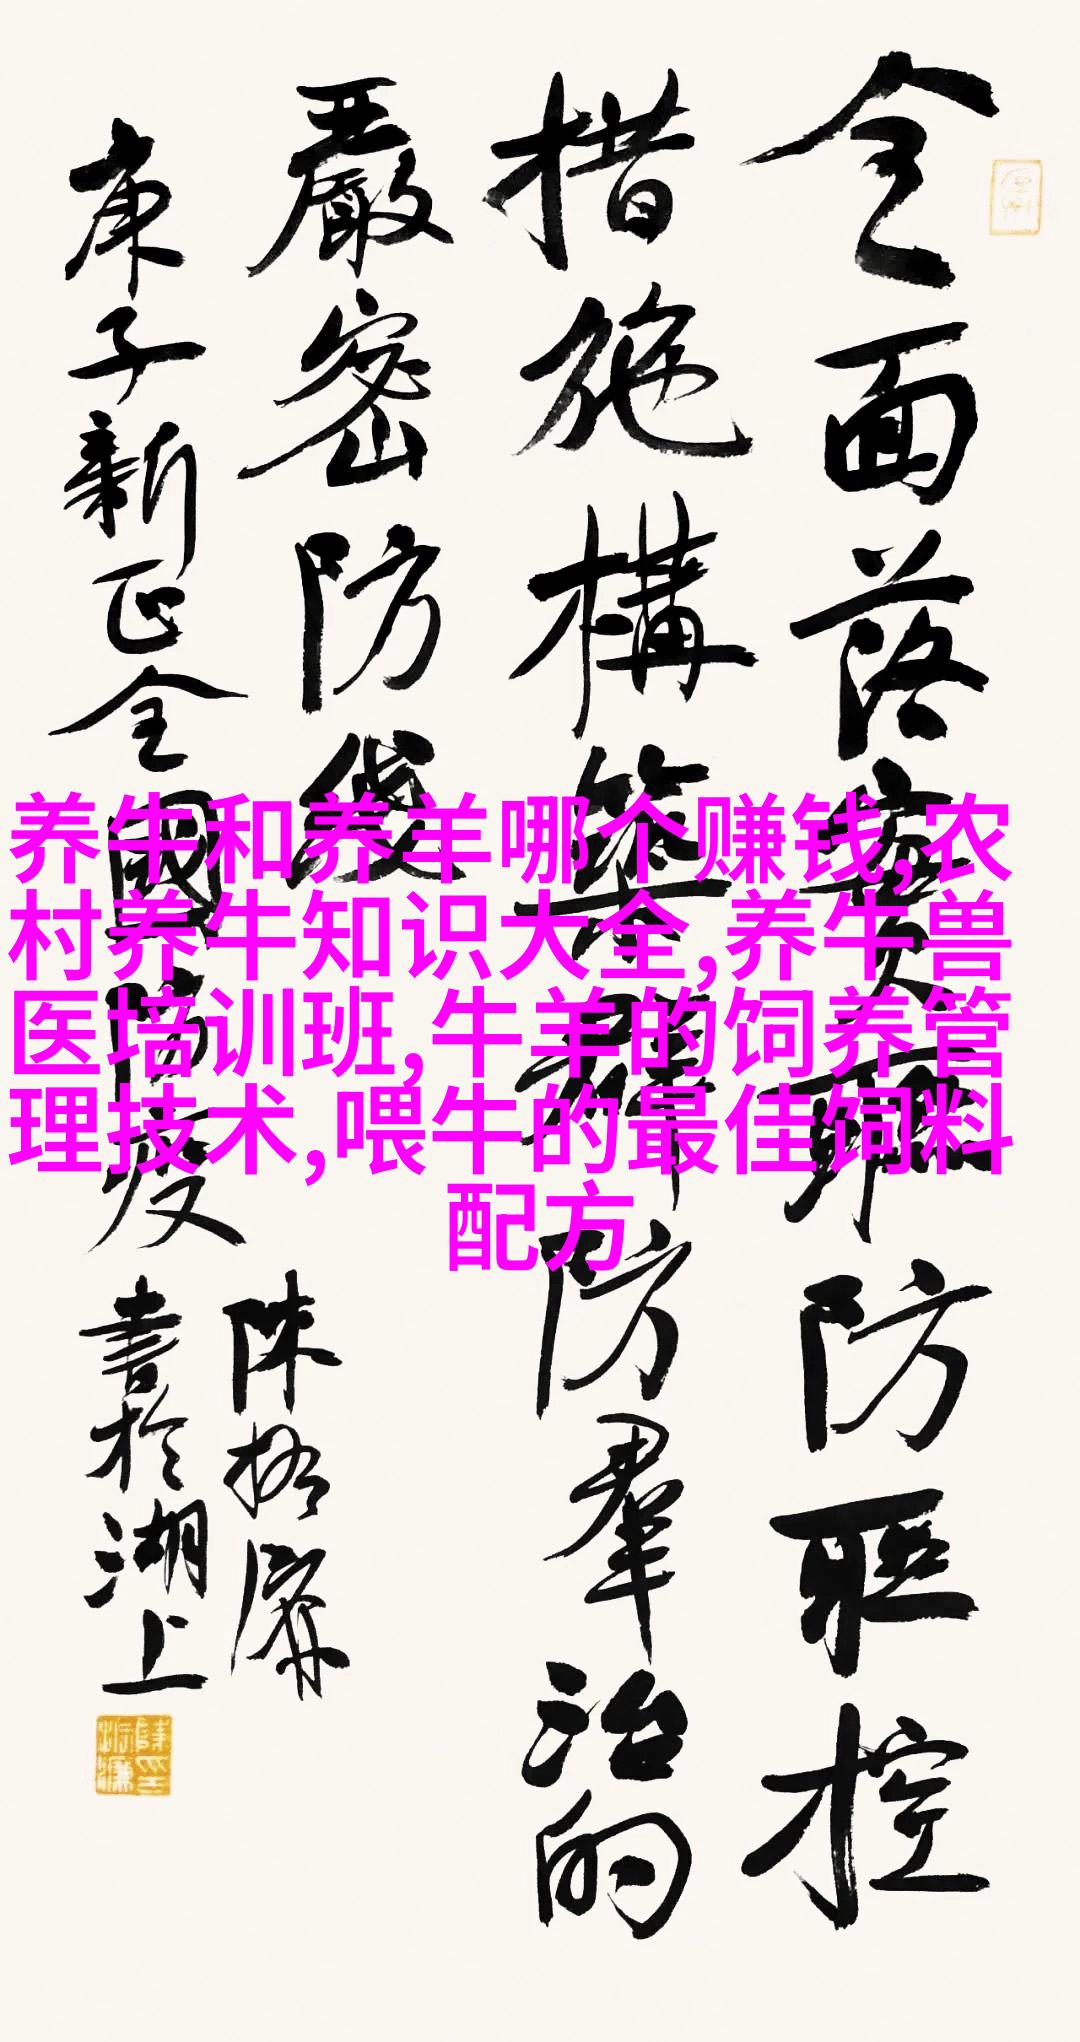 全面落實联防联控
措施構築群防羣治的
嚴密防綫
庚子新正全國防疫
書於湖上
养牛和养羊哪个赚钱,农
村养牛知识大全,养牛兽
医培训班,牛羊的饲养管
理技术,喂牛的最佳饲料
配方